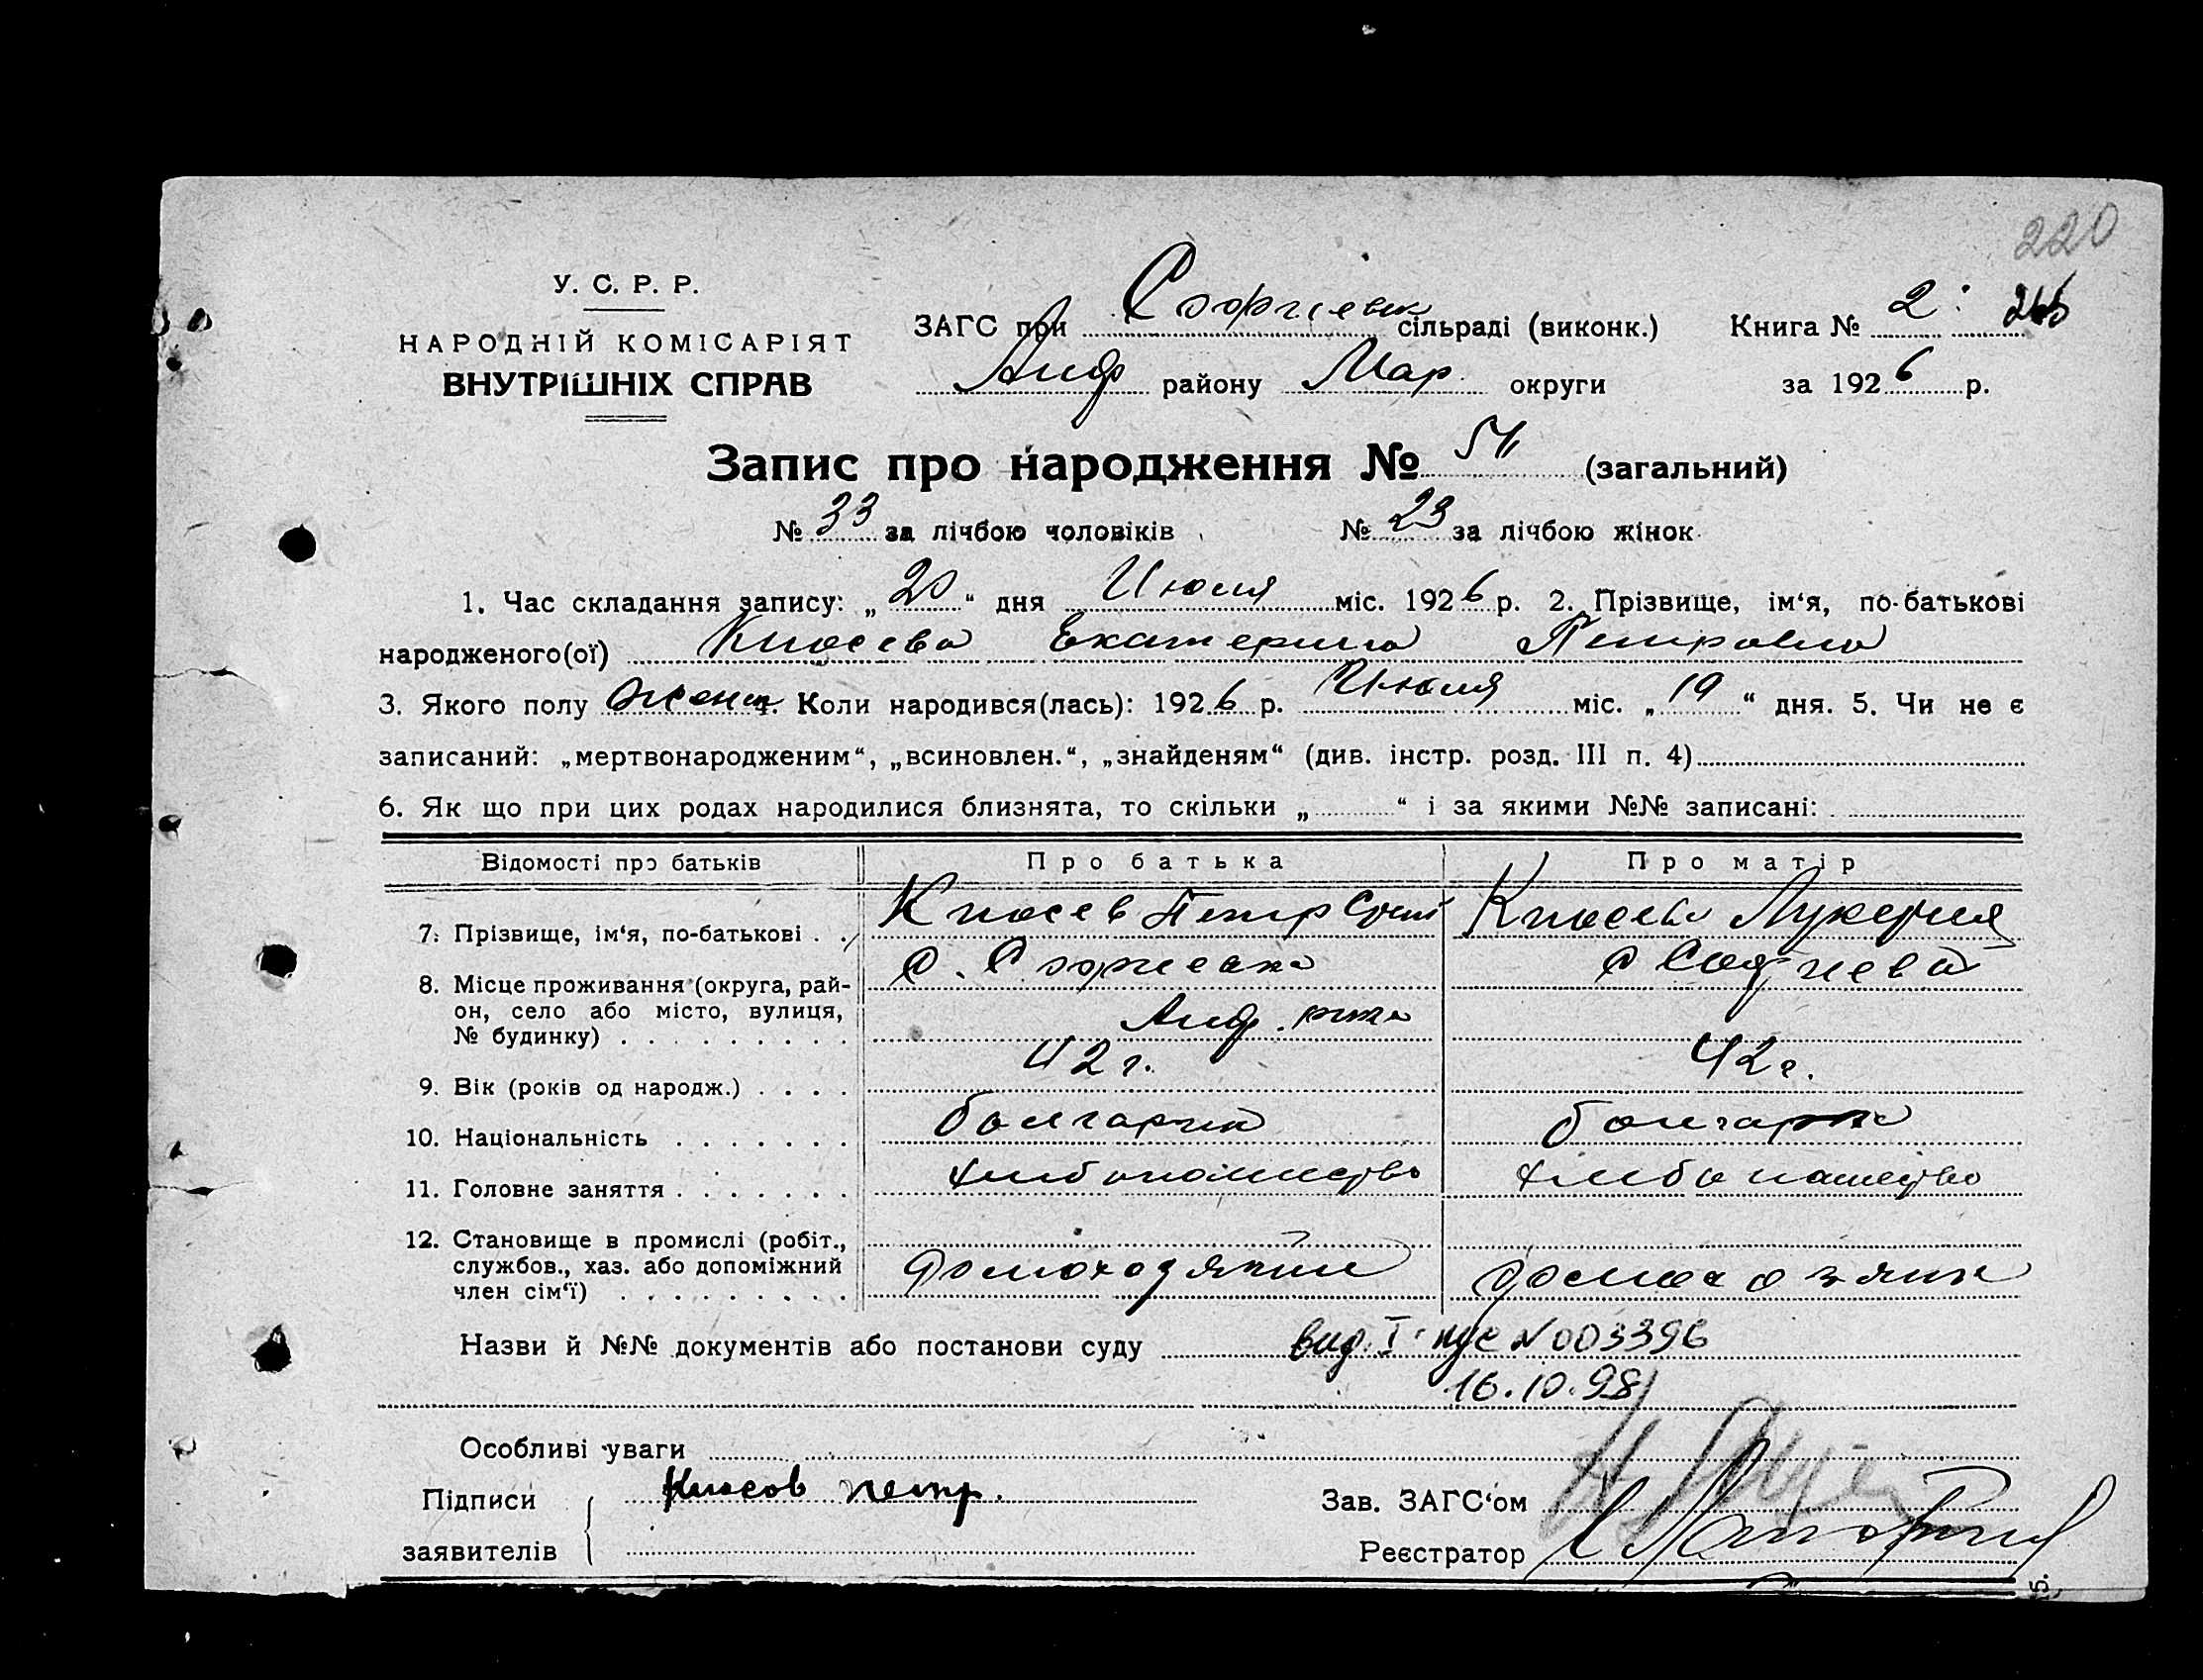 220
У. С. Р. Р.
НАРОДНІЙ КОМІСАРІЯТ
ВНУТРІШНІХ СПРАВ
ЗАГС при Софиевск сільраді (виконк.) Книга № 2
Анд району Мар округи за 1926 р.
Запис про народження № (загальний)
№ 33 за лічбою чоловіків № 23 за лічбою жінок
1. Час складання запису: „20“ дня Июля міс. 1926 р. 2. Прізвище, ім‘я, по-батькові
народженого(ої) Кносева Екатерина Петровна
3. Якого полу женск 4. Коли народився(лась): 1926 р. Июля міс. „19“ дня. 5. Чи не є
записаний: „мертвонародженим“, „всиновлен.“, „знайденям“ (див. інстр. розд. III п. 4)
6. Як що при цих родах народилися близнята, то скільки „ “ і за якими №№ записані:
Відомості про батьків Про батька Про матір
7. Прізвище, ім‘я, по-батькові Кносев Петр Кносева Лукерия
8. Місце проживання (округа, рай-
он, село або місто, вулиця,
№ будинку) с. Софиевка с Софиевка
Анд.
9. Вік (років од народж.) 42 г. 42 г.
10. Національність болгарин болгарка
11. Головне заняття хлебопашество хлебопашество
12. Становище в промислі (робіт.,
службов., хаз. або допоміжний
член сім‘ї) домохозяин домохозяин
Назви й №№ документів або постанови суду вид. I № 003396
16.10.98
Особливі уваги
Підписи Кносов петр.
Зав. ЗАГС‘ом
заявителів
Реєстратор